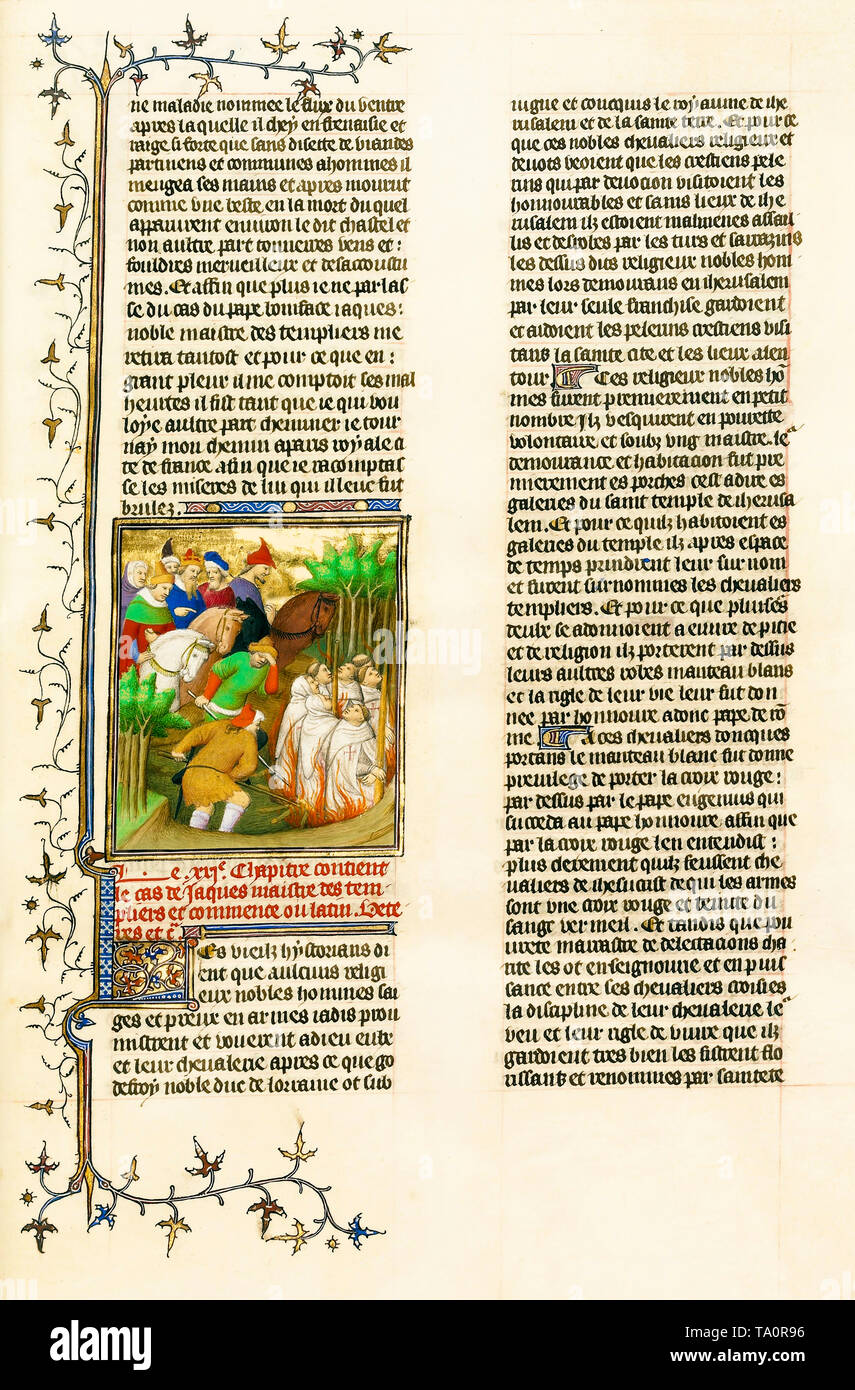 ne maladie nommee le flux du ventre
apres la quelle il chey en frenaisie et
raige si forte que sans disette de viandes
partinens et communes a hommes il
mengea ses mains et apres mourut
comme une beste en la mort du quel
apparurent environ le dit chastel et
non aultre part tonnerres vens et:
fouldres merveilleux et desaccoustu
mes. Et affin que plus ie ne parlas
se du cas du pape boniface iaques:
noble maistre des templiers me
retira tantost et pour ce que en:
grant pleur il me comptoit ses mal
heurtes il fist tant que ie qui vou
loye aultre part cheminer ie tour
nay mon chemin a paris royale ci
te de france afin que ie racomptas
se les miseres de lui qui illeuc fut
brulez.
Le .xxi.e Chapitre contient
le cas de Jaques maistre des tem-
pliers et commence ou latin. Vete
res et c̄.
Les vieilz hystorians di
ent que aulcuns religi
eux nobles hommes sai
ges et preux en armes iadis prou
mistrent et vouerent a dieu eulx
et leur chevalerie apres ce que go
deffroy noble duc de lorraine ot sub
iugue et conquis le royaume de ihe
rusalem et de la sainte terre. Et pour ce
que ces nobles chevaliers religieux et
devots veoient que les crestiens pele
rins qui par devocion visitoient les
honnourables et sains lieux de ihe
rusalem ilz estoient malmenes assail
lis et desrobes par les turs et sarrazins
les dessus dits religieux nobles hom
mes lors demourans en iherusalem
par leur seule franchise gardoient
et aidoient les pelerins crestiens visi
tans la sainte cite et les lieux alen
tour Ces religieux nobles hō
mes furent premierement en petit
nombre Ilz vesquirent en pourette
volontaire et soubz ung maistre. le
demourance et habitacion fut pre
mierement es porches cest a dire es
galeries du saint temple de iherusa
lem. Et pour ce quilz habitoient es
galeries du temple ilz apres espace
de temps prindrent leur sur nom
et furent surnommes les chevaliers
templiers. Et pour ce que pluises
deulx se adonnoient a euvre de pitie
et de religion ilz porterent par dessus
leurs aultres robes manteau blans
et la rigle de leur vie leur fut don
nee par honnoure adonc pape de rō
me A ces chevaliers doncques
portans le manteau blanc fut donne
previlege de porter la croix rouge:
par dessus par le pape eugenius qui
succeda au pape honnoure affin que
par la croix rouge len entendist:
plus clerement quilz feussent che
valiers de ihesucrist de qui les armes
sont une croix rouge et teinte du
sang vermeil. Et tandis que pou
vrete marrastre de delectacions cha
rite les ot enseignourie et en puis
sance entre ses chevaliers croisies
la discipline de leur chevalerie le
veu et leur rigle de vivre que ilz
gardoient tres bien les firent flo
rissans et renommes par saintete
alamy
Image ID: TA0R96
www.alamy.com